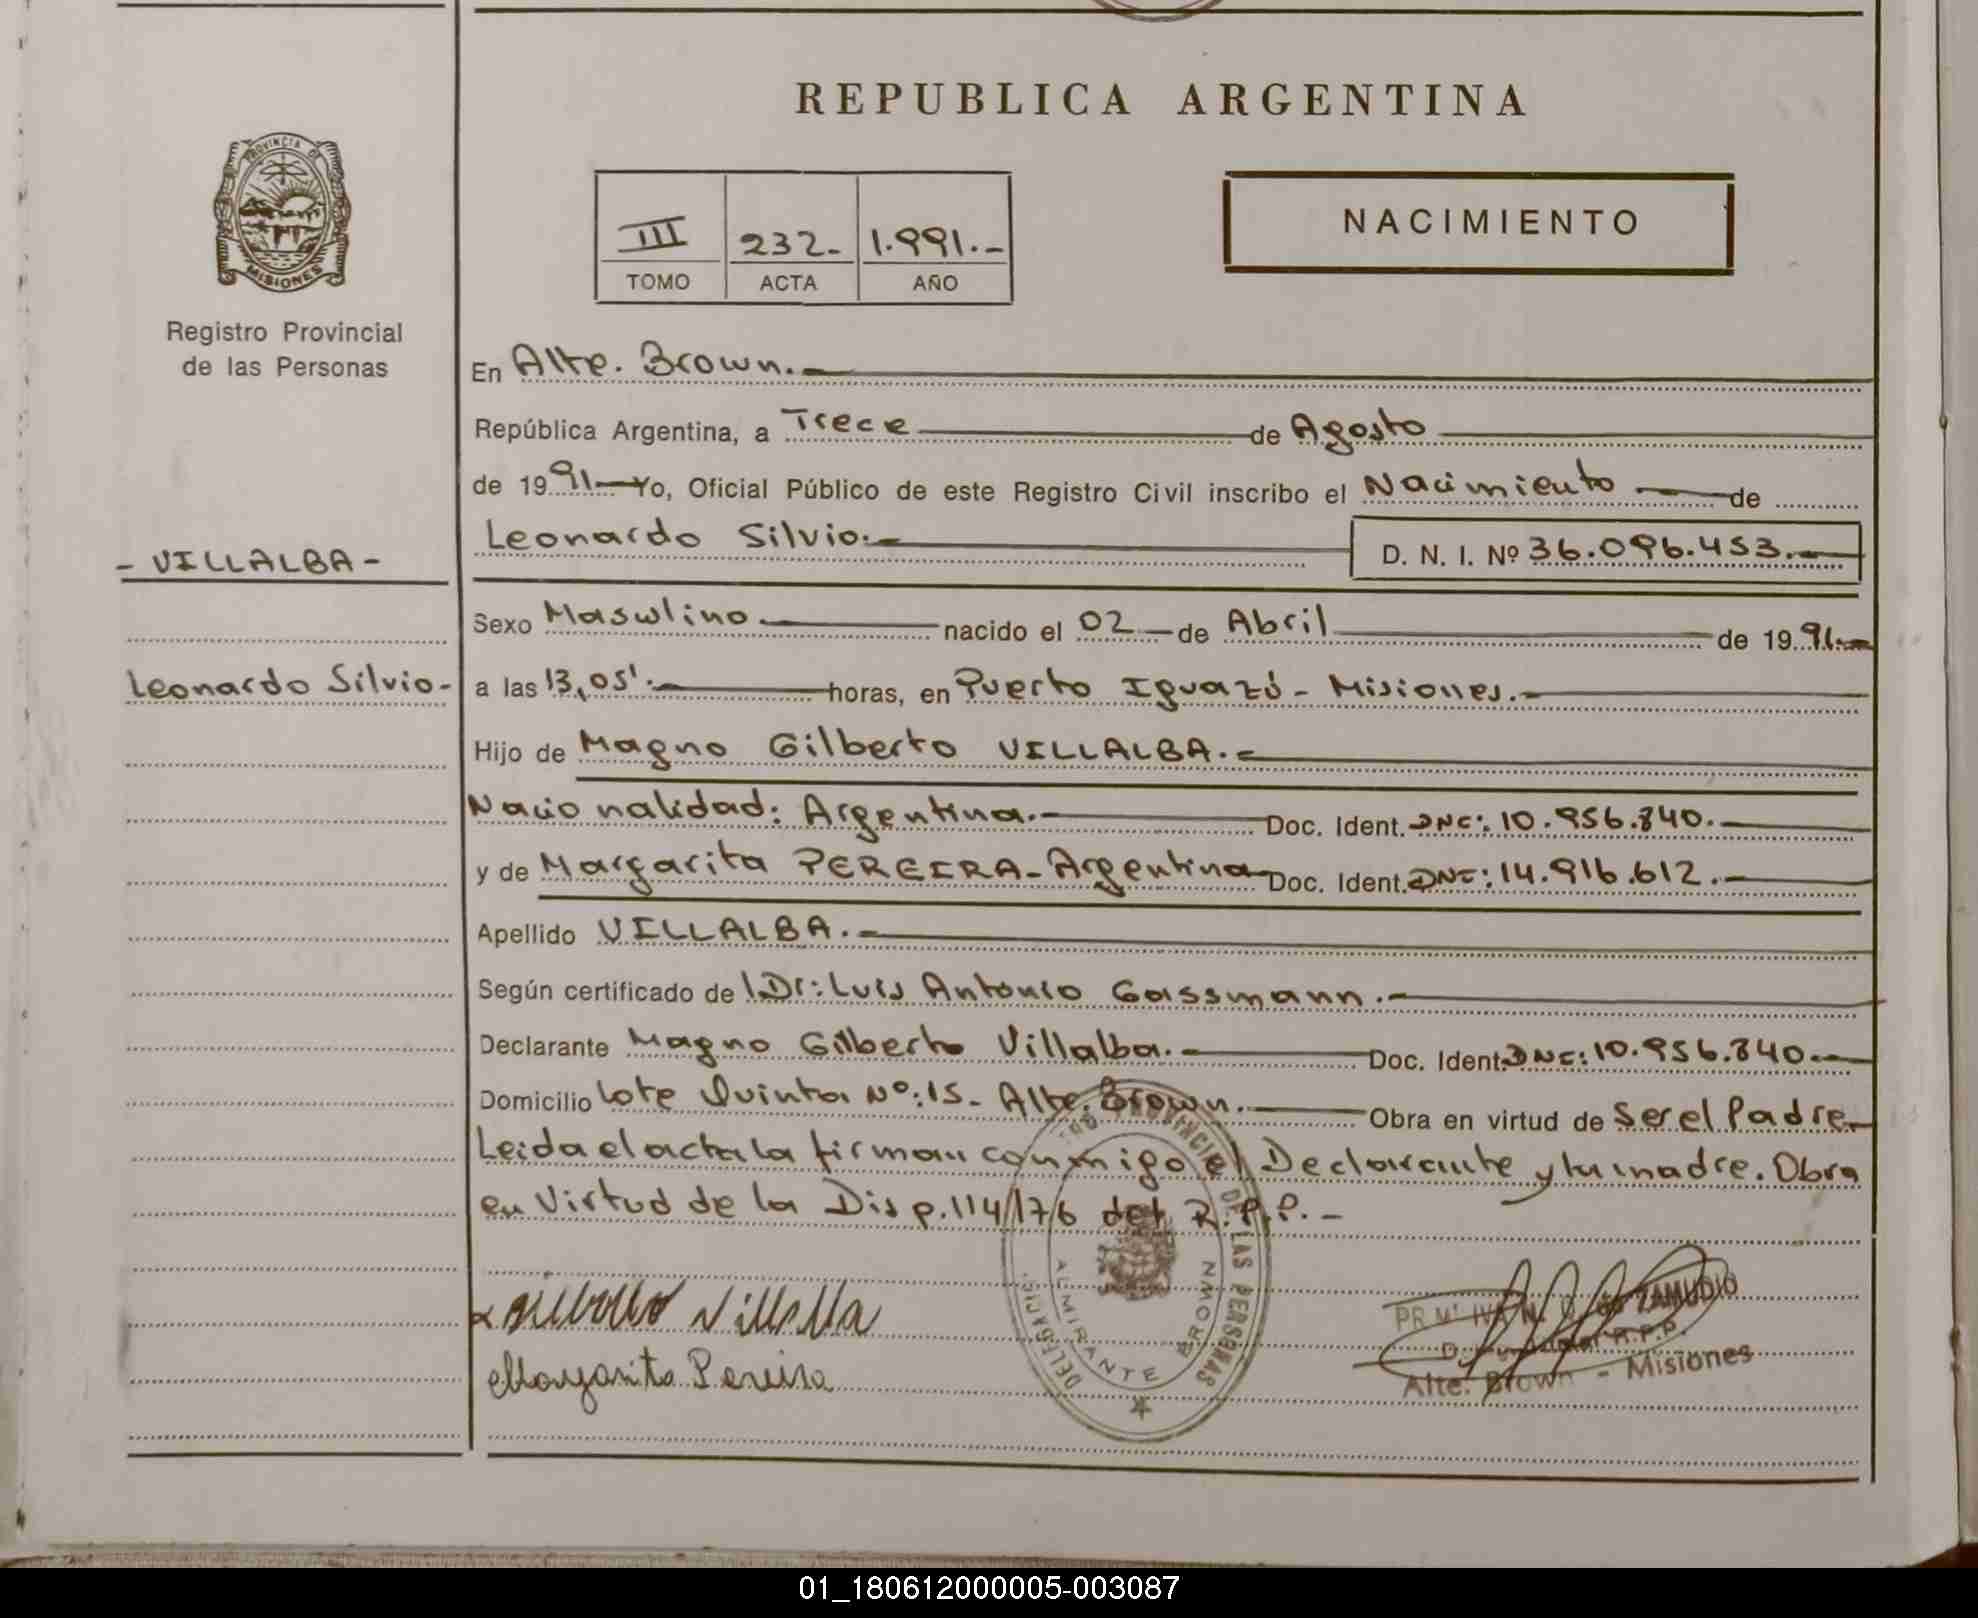 REPUBLICA ARGENTINA
PROVINCIA DE
MISIONES
Registro Provincial
de las Personas
III 232- 1.991.-
TOMO ACTA AÑO
NACIMIENTO
En Alte. Brown.
República Argentina, a Trece de Agosto
de 1991 Yo, Oficial Público de este Registro Civil inscribo el Nacimiento de
- VILLALBA -
Leonardo Silvio.- D. N. I. Nº 36.096.453.-
Sexo Masculino nacido el 02 de Abril de 1991.-
Leonardo Silvio-
a las 13,05'. horas, en Puerto Iguazú - Misiones.-
Hijo de Magno Gilberto VILLALBA.-
Nacionalidad: Argentina.- Doc. Ident. DNI: 10.956.840.-
y de Margarita PEREIRA - Argentina Doc. Ident. DNI: 14.916.612.-
Apellido VILLALBA.-
Según certificado de Dr: Luis Antonio Gassmann.-
Declarante Magno Gilberto Villalba.- Doc. Ident. DNI: 10.956.840.-
Domicilio Lote Quinta Nº: 15- Alte. Brown.- Obra en virtud de Ser el Padre.
Leida el acta la firman conmigo el Declarante y la madre. Obra
en Virtud de la Disp. 114/76 del R.P.P. -
Villalba
Margarita Pereira
PROVINCIAL DE LAS PERSONAS
DELEGACION
ALMIRANTE BROWN
de ZAMUDIO
R.P.P.
Alte. Brown - Misiones
01_180612000005-003087